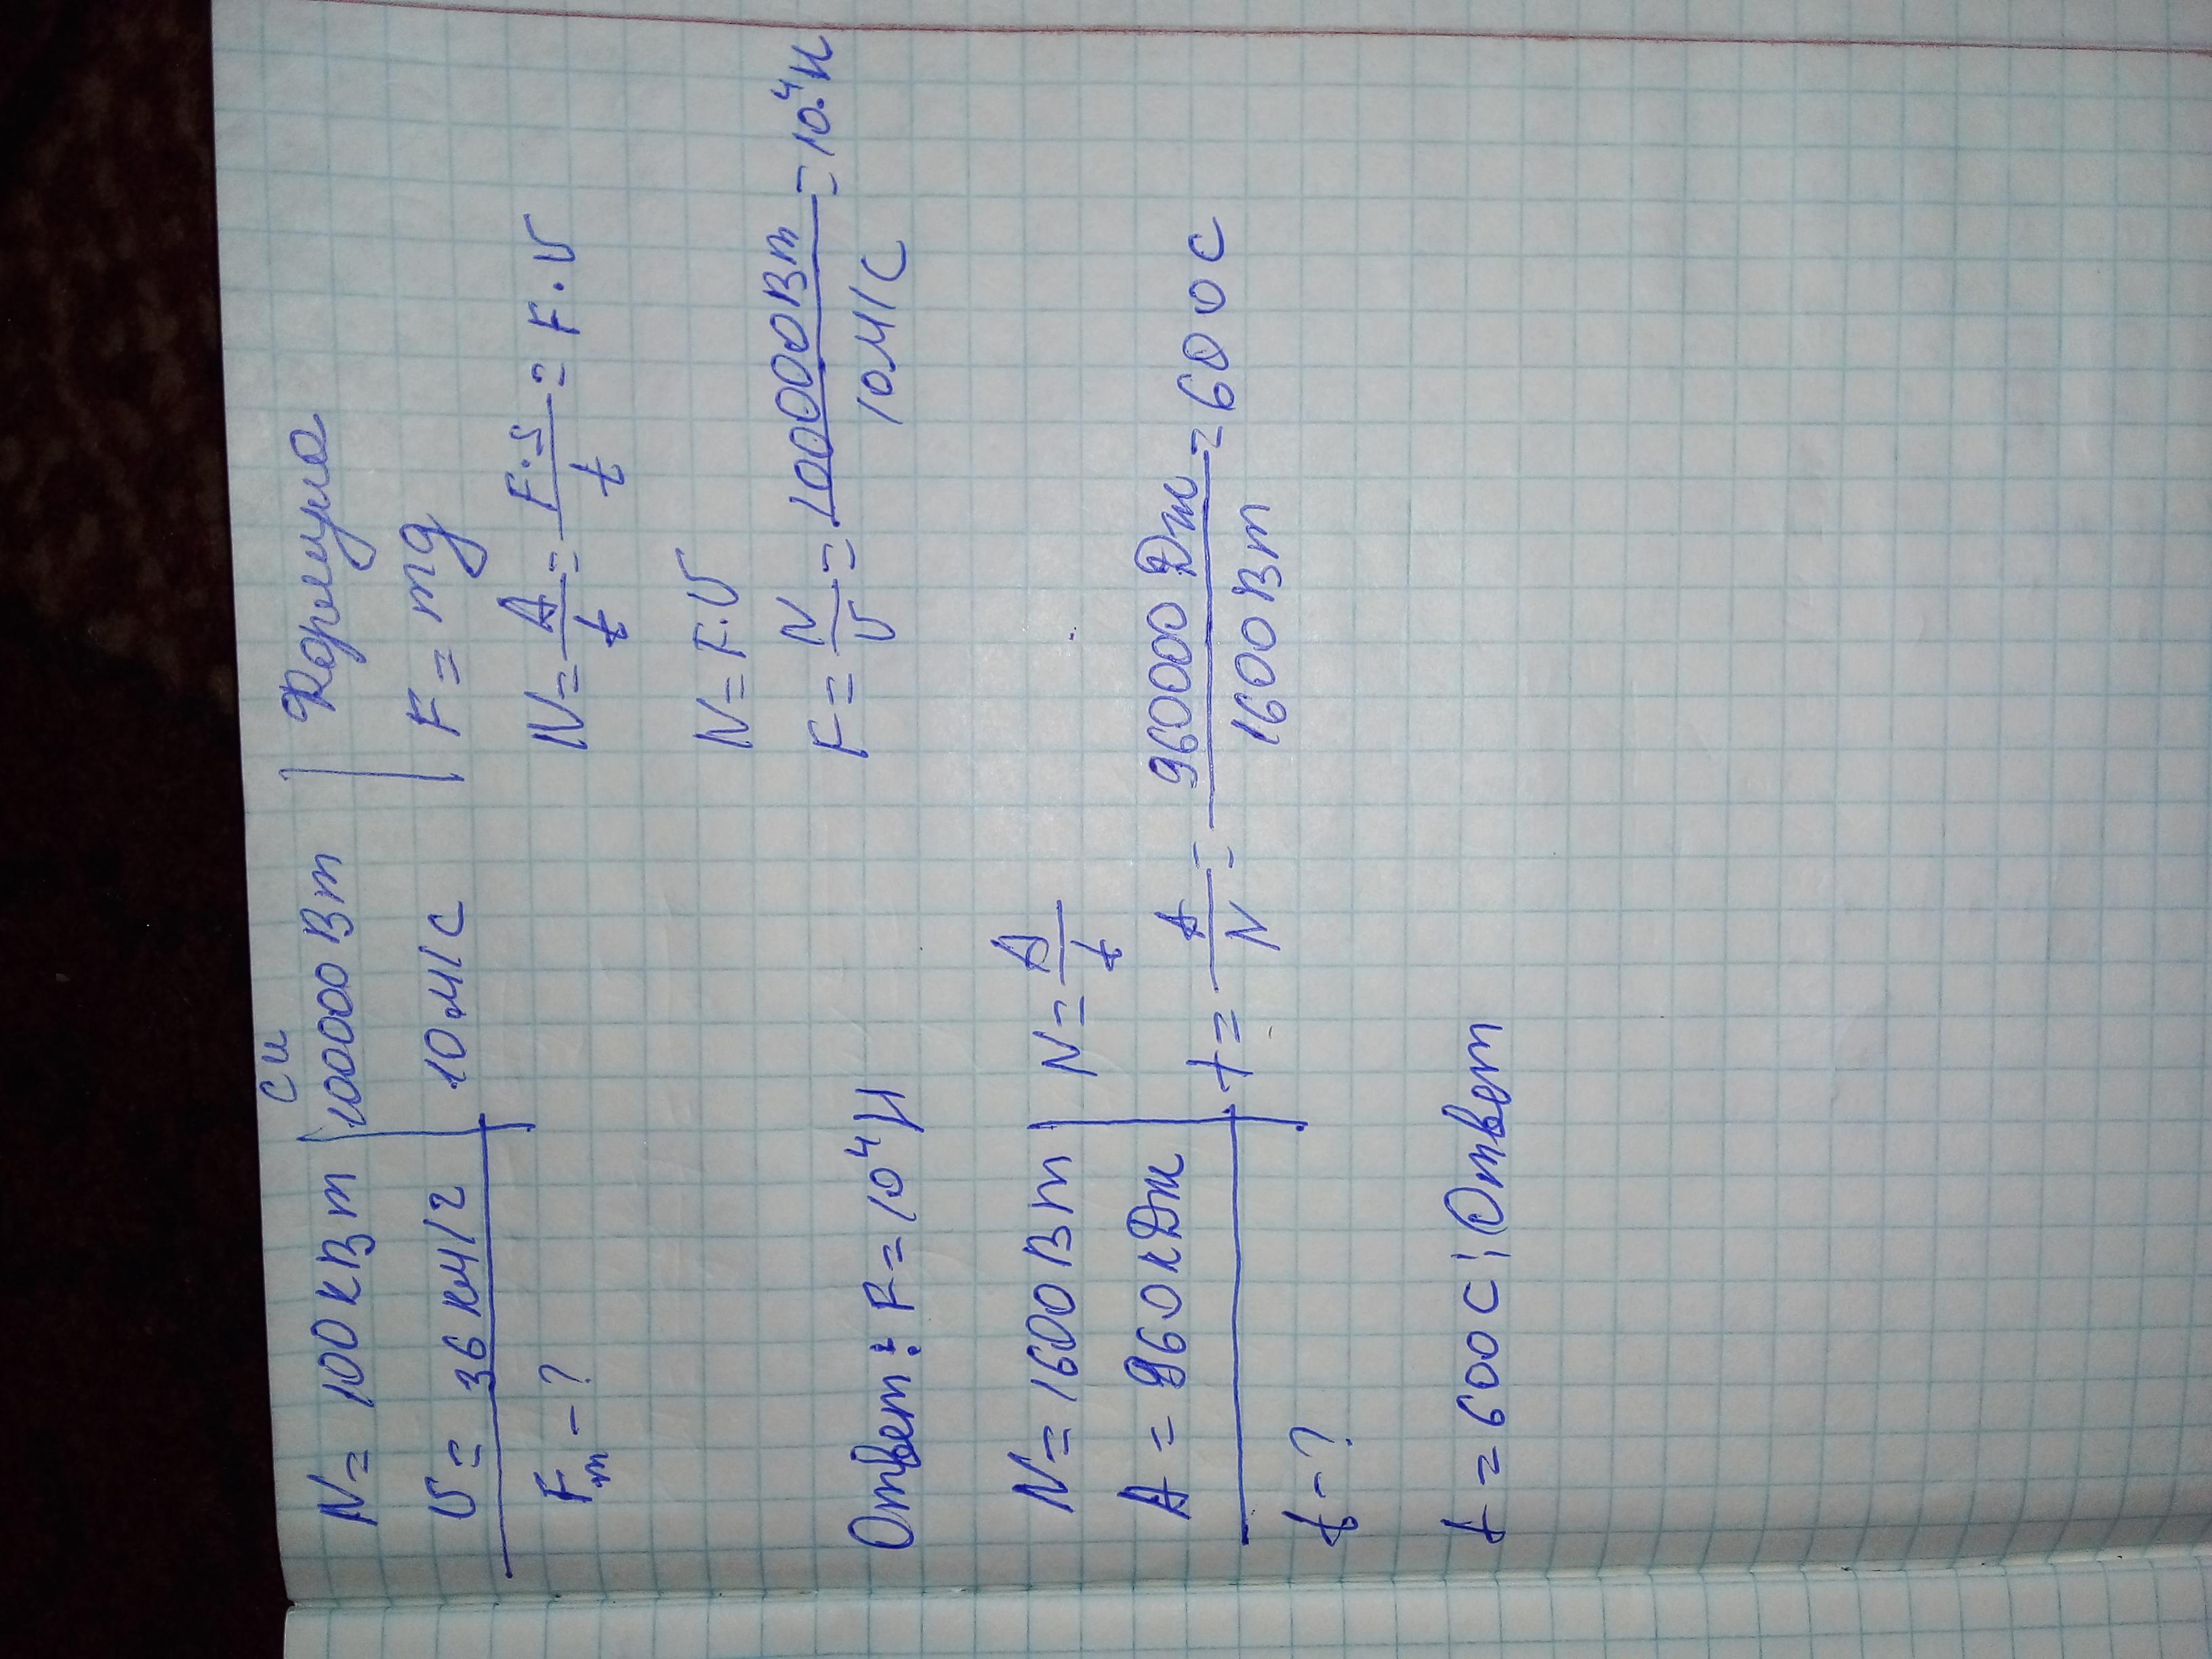 СИ
N = 100 кВт | 100000 Вт | Формула
υ = 36 км/г | 10 м/с | F = mg
Fт - ? N = A/t = F·s/t = F·υ
N = F·υ
F = N/υ = 100000 Вт/10 м/с = 10.⁴ Н
Ответ: F = 10⁴ Н
N = 1600 Вт | N = A/t
A = 960 кДж | t = A/N = 960000 Дж/1600 Вт = 600 с
t - ?
t = 600 с ¦ Ответ